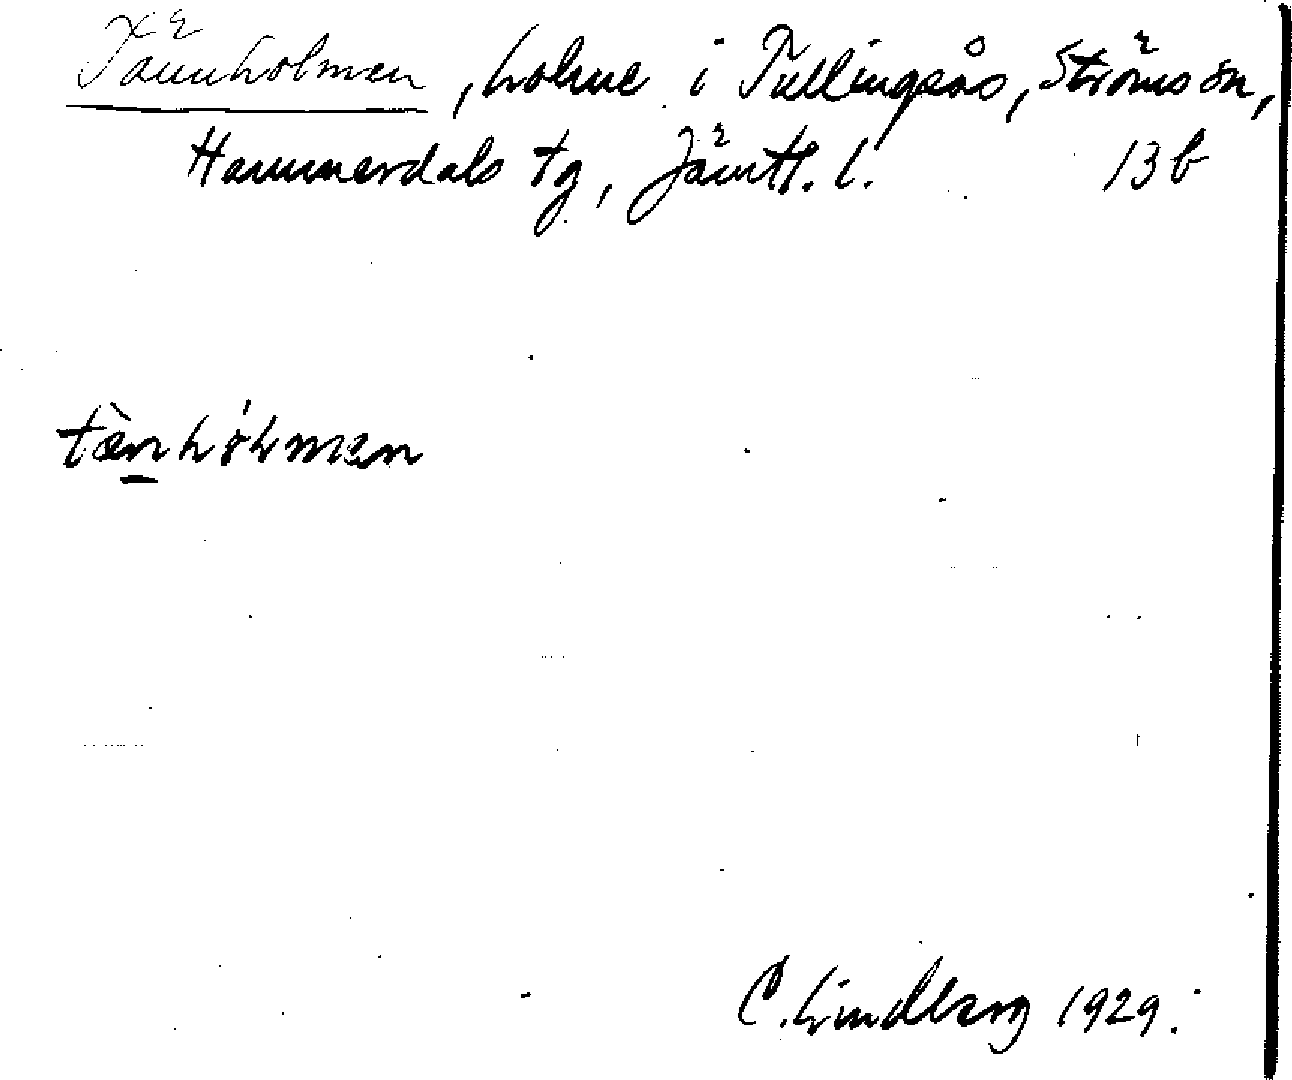 Tännholmen, holme i Tullingsås, Ströms sn,
Hammerdals tg, Jämtl. l. 13 b
tänhólmen
C. Lindberg 1929.